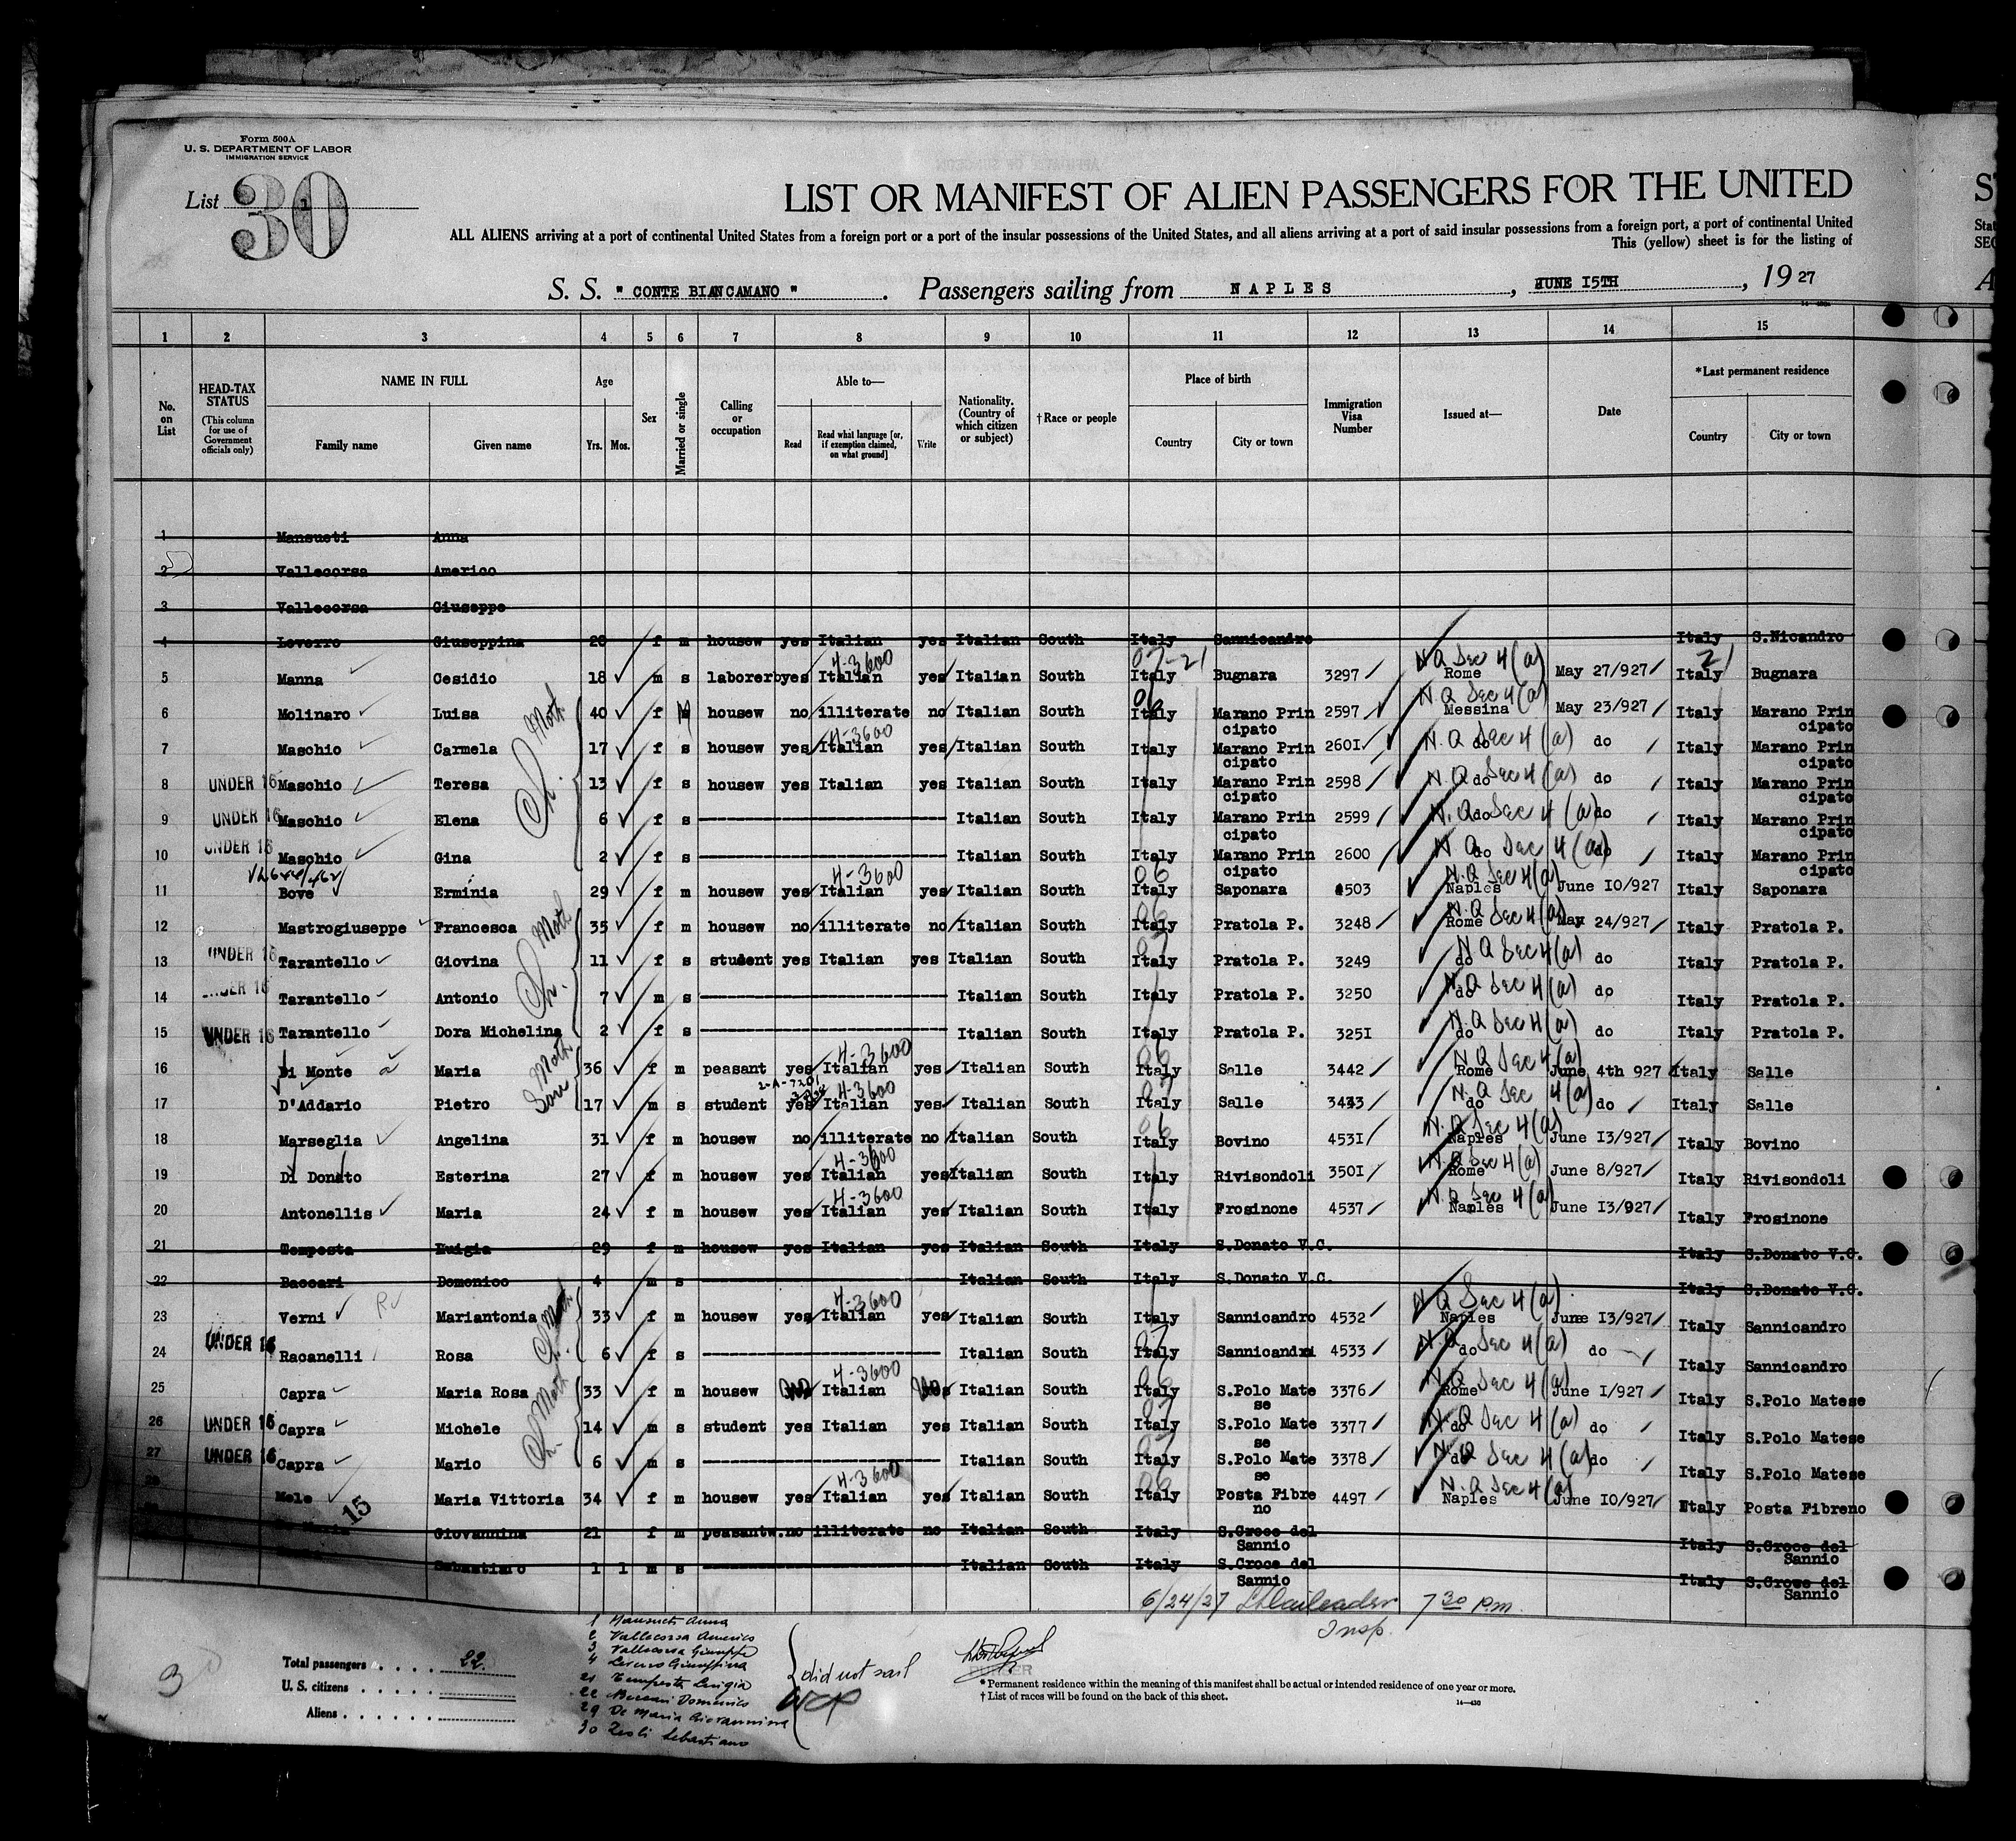 Form 500A
U. S. DEPARTMENT OF LABOR
IMMIGRATION SERVICE
List 30
LIST OR MANIFEST OF ALIEN PASSENGERS FOR THE UNITED
ALL ALIENS arriving at a port of continental United States from a foreign port or a port of the insular possessions of the United States, and all aliens arriving at a port of said insular possessions from a foreign port, a port of continental United
This (yellow) sheet is for the listing of
S. S. " CONTE BIANCAMANO " . Passengers sailing from NAPLES , JUNE 15TH , 19 27
1 2 3 4 5 6 7 8 9 10 11 12 13 14 15
No. on List
HEAD-TAX STATUS (This column for use of Government officials only)
NAME IN FULL
Family name Given name
Age
Yrs. Mos.
Sex
Married or single
Calling or occupation
Able to—
Read Read what language [or, if exemption claimed, on what ground] Write
Nationality. (Country of which citizen or subject)
† Race or people
Place of birth
Country City or town
Immigration Visa Number
Issued at—
Date
*Last permanent residence
Country City or town
1 Mansueti Anna
2 Vallecorsa Americo
3 Vallecorsa Giuseppe
4 Loverro Giuseppina 28 f m housew yes Italian yes Italian South Italy Sannicandro Italy S.Nicandro
5 Manna Cesidio 18 m s laborer yes Italian 4-3600 yes Italian South Italy Bugnara 3297 N Q Sec 4(a) Rome May 27/927 Italy Bugnara
6 Molinaro Luisa 40 f housew no illiterate no Italian South Italy Marano Principato 2597 N Q Sec 4(a) Messina May 23/927 Italy Marano Principato
7 Maschio Carmela 17 f s housew yes Italian 4-3600 yes Italian South Italy Marano Principato 2601 N. Q Sec 4(a) do do Italy Marano Principato
8 UNDER 16 Maschio Teresa 13 f s housew yes Italian yes Italian South Italy Marano Principato 2598 N. Q Sec 4(a) do do Italy Marano Principato
9 UNDER 16 Maschio Elena 6 f s Italian South Italy Marano Principato 2599 N. Q Sec 4(a) do do Italy Marano Principato
10 UNDER 16 Maschio Gina 2 f s Italian South Italy Marano Principato 2600 N Q Sec 4(a) do do Italy Marano Principato
Ch. Moth
11 Bove Erminia 29 f m housew yes Italian 4-3600 yes Italian South Italy Saponara 4503 N. Q Sec 4(a) Naples June 10/927 Italy Saponara
12 Mastrogiuseppe Francesca 35 f m housew no illiterate no Italian South Italy Pratola P. 3248 N. Q Sec 4(a) Rome May 24/927 Italy Pratola P.
13 UNDER 16 Tarantello Giovina 11 f s student yes Italian yes Italian South Italy Pratola P. 3249 N Q Sec 4(a) do do Italy Pratola P.
14 UNDER 16 Tarantello Antonio 7 m s Italian South Italy Pratola P. 3250 N Q Sec 4(a) do do Italy Pratola P.
15 UNDER 16 Tarantello Dora Michelina 2 f s Italian South Italy Pratola P. 3251 N. Q Sec 4(a) do do Italy Pratola P.
Ch. Moth
16 Di Monte Maria 36 f m peasant yes Italian 4-3600 yes Italian South Italy Salle 3442 N Q Sec 4(a) Rome June 4th 927 Italy Salle
17 D'Addario Pietro 17 m s student yes Italian 4-3600 yes Italian South Italy Salle 3443 N. Q Sec 4(a) do do Italy Salle
Son Moth
18 Marseglia Angelina 31 f m housew no illiterate no Italian South Italy Bovino 4531 N. Q Sec 4(a) Naples June 13/927 Italy Bovino
19 Di Donato Esterina 27 f m housew yes Italian 4-3600 yes Italian South Italy Rivisondoli 3501 N. Q Sec 4(a) Rome June 8/927 Italy Rivisondoli
20 Antonellis Maria 24 f m housew yes Italian 4-3600 yes Italian South Italy Frosinone 4537 N. Q Sec 4(a) Naples June 13/927 Italy Frosinone
21 Tempesta Luigia 29 f m housew yes Italian yes Italian South Italy S.Donato V.C. Italy S.Donato V.C.
22 Baccari Domenico 4 m s Italian South Italy S.Donato V.C. Italy S.Donato V.C.
23 Verni Mariantonia 33 f m housew yes Italian 4-3600 yes Italian South Italy Sannicandro 4532 N Q Sec 4(a) Naples June 13/927 Italy Sannicandro
24 UNDER 16 Racanelli Rosa 6 f s Italian South Italy Sannicandro 4533 N. Q Sec 4(a) do do Italy Sannicandro
Ch. Moth
25 Capra Maria Rosa 33 f m housew no Italian 4-3600 no Italian South Italy S.Polo Matese 3376 N Q Sec 4(a) Rome June 1/927 Italy S.Polo Matese
26 UNDER 16 Capra Michele 14 m s student yes Italian yes Italian South Italy S.Polo Matese 3377 N. Q Sec 4(a) do do Italy S.Polo Matese
27 UNDER 16 Capra Mario 6 m s Italian South Italy S.Polo Matese 3378 N. Q Sec 4(a) do do Italy S.Polo Matese
Ch. Moth
28 Mele Maria Vittoria 34 f m housew yes Italian 4-3600 yes Italian South Italy Posta Fibreno 4497 N. Q Sec 4(a) Naples June 10/927 Italy Posta Fibreno
15
Giovannina 21 f m peasantw. no illiterate no Italian South Italy S.Croce del Sannio Italy S.Croce del Sannio
Sebastiano 1 1 m s Italian South Italy S.Croce del Sannio Italy S.Croce del Sannio
6/24/27 7 30 P.m.
Insp.
1 Mansueti Anna
2 Vallecorsa Americo
3 Vallecorsa Giuseppe
4 Loverro Giuseppina
21 Tempesta Luigia
22 Baccari Domenico
29 De Maria Giovannina
30 Zeoli Sebastiano
did not sail
PURSER
Total passengers . . . . 22.
U. S. citizens . . . . .
Aliens . . . . . .
* Permanent residence within the meaning of this manifest shall be actual or intended residence of one year or more.
† List of races will be found on the back of this sheet.
14—430